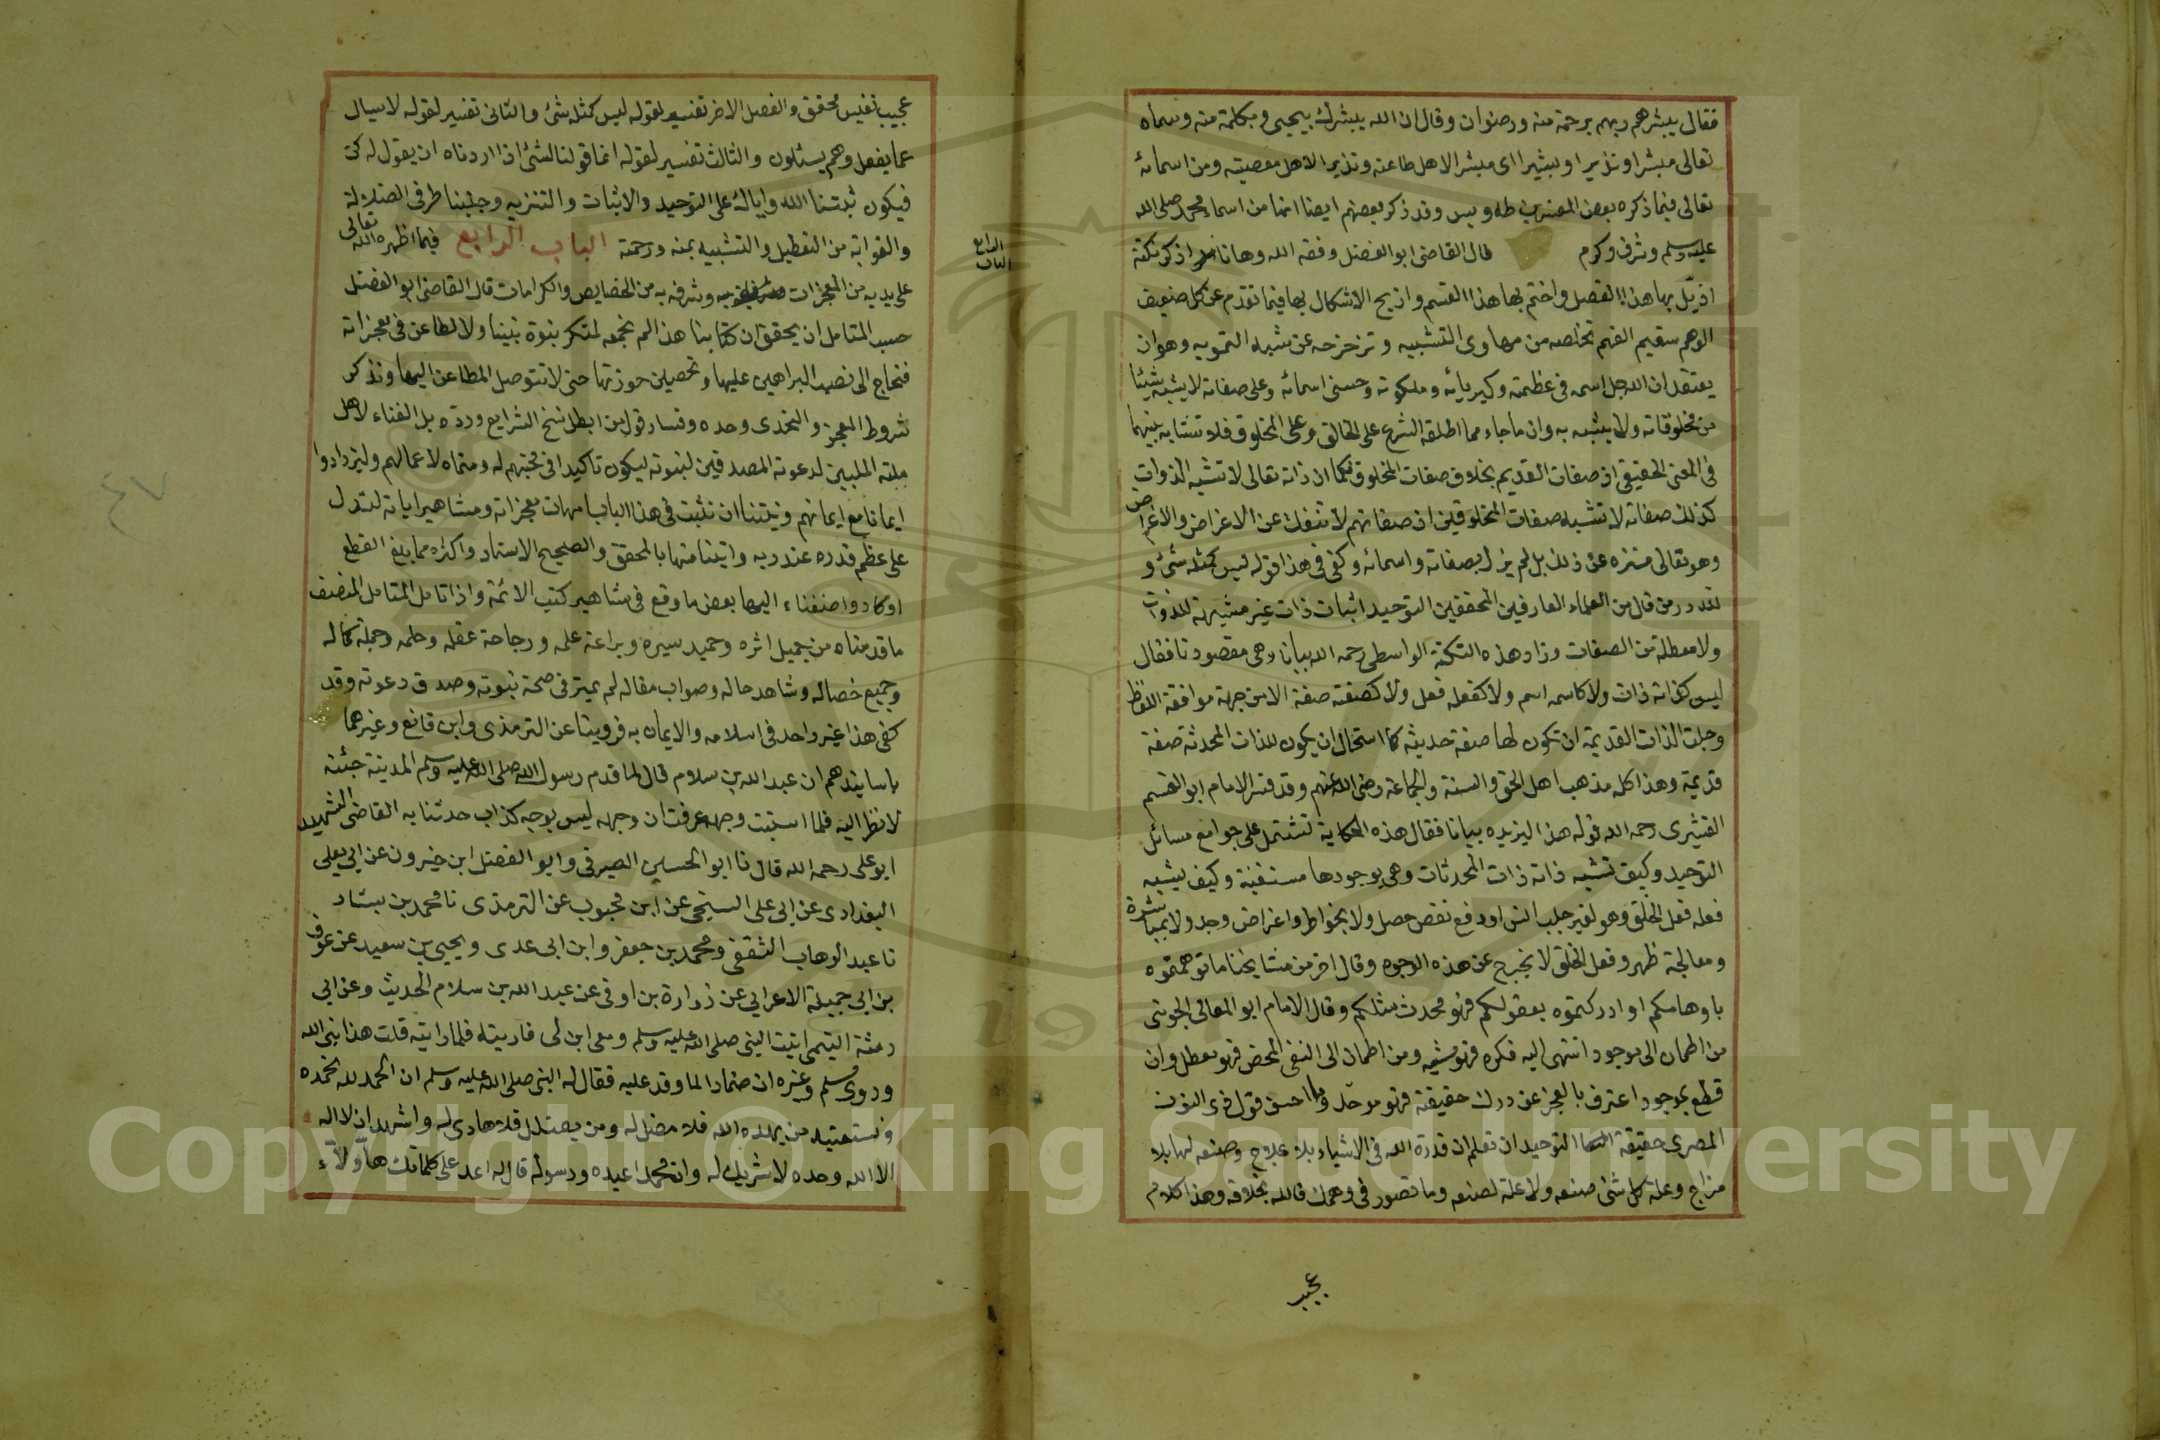 فقال يبشرهم ربهم برحمة منه ورضوان وقال ان الله يبشرك بيحيى وبكلمة منه وسماه
تعالى مبشرا ونذيرا وبشيرا اى مبشرا لاهل طاعته ونذيرا لاهل معصيته ومن اسمائه
تعالى فيما ذكره بعض المفسرين طه ويس وقد ذكر بعضهم ايضا انها من اسماء محمد صلى الله
عليه وسلم وشرف وكرم قال القاضى ابو الفضل وفقه الله وها انا اذكر نكتة
اذيّل بها هذا الفصل واختم بها هذا القسم وازيح الاشكال بها فيما تقدم عن كل ضعيف
الوهم سقيم الفهم تخلصه من مهاوى التشبيه وتزحزحه عن شبه التمويه وهو ان
يعتقد ان الله جل اسمه فى عظمته وكبريائه وملكوته وحسنى اسمائه وعلى صفاته لا يشبه شيئا
من مخلوقاته ولا يشبه به وان ما جاء مما اطلقه الشرع على الخالق وعلى المخلوق فلا تشابه بينهما
فى المعنى الحقيقى اذ صفات القديم بخلاف صفات المخلوق فكما ان ذاته تعالى لا تشبه الذوات
كذلك صفاته لا تشبه صفات المخلوقين اذ صفاتهم لا تنفك عن الاعراض والاغراض
وهو تعالى منزه عن ذلك بل لم يزل بصفاته واسمائه وكفى فى هذا قوله ليس كمثله شئ و
لله در من قال من العلماء العارفين المحققين التوحيد اثبات ذات غير مشبهة للذوات
ولا معطلة من الصفات وزاد هذه النكتة الواسطى رحمه الله بيانا وهى مقصودنا فقال
ليس كذاته ذات ولا كاسمه اسم ولا كفعله فعل ولا كصفته صفة الا من جهة موافقة اللفظ
وجلت الذات القديمة ان تكون لها صفة حديثة كما استحال ان يكون للذات المحدثة صفة
قديمة وهذا كله مذهب اهل الحق والسنة والجماعة رضى الله عنهم وقد فسر الامام ابو القسم
القشيرى رحمه الله قوله هذا ليزيده بيانا فقال هذه الحكاية تشتمل على جوامع مسائل
التوحيد وكيف تشبه ذاته ذات المحدثات وهى بوجودها مستغنية وكيف يشبه
فعله فعل الخلق وهو لغير جلب انس او دفع نقص حصل ولا بخواطر واغراض وجد ولا بمباشرة
ومعالجة ظهر وفعل الخلق لا يخرج عن هذه الوجوه وقال اخر من مشايخنا ما توهمتموه
باوهامكم او ادركتموه بعقولكم فهو محدث مثلكم وقال الامام ابو المعالى الجوينى
من اطمان الى موجود انتهى اليه فكره فهو مشبه ومن اطمان الى النفى المحض فهو معطل وان
قطع بموجود اعترف بالعجز عن درك حقيقته فهو موحد وما احسن قول ذى النون
المصرى حقيقة التوحيد ان تعلم ان قدرة الله فى الاشياء بلا علاج وصنعه لها بلا
مزاج وعلة كل شئ صنعه ولا علة لصنعه وما تصور فى وهمك فالله بخلافه وهذا كلام
عجيب
الباب
الرابع
عجيب نفيس محقق والفصل الاخر تفسير لقوله ليس كمثله شئ والثانى تفسير لقوله لا يسال
عما يفعل وهم يسئلون والثالث تفسير لقوله انما قولنا لشئ اذا اردناه ان يقول له كن
فيكون ثبتنا الله واياك على التوحيد والاثبات والتنزيه وجنبنا طرفى الضلالة
والغواية من التعطيل والتشبيه بمنه ورحمته الباب الرابع فيما اظهره الله تعالى
على يديه من المعجزات وشرفه به من الخصايص والكرامات قال القاضى ابو الفضل
حسب المتامل ان يحقق ان كتابنا هذا لم نجمعه لمنكر بنوة نبينا ولا لطاعن فى معجزاته
فنحتاج الى نصب البراهين عليها وتحصين حوزتها حتى لا يتوصل المطاعن اليها ونذكر
شروط المعجز والتحدى وحده وفساد قول من ابطل نسخ الشرايع ورده بل الفناه لاهل
ملته الملبين لدعوته المصدقين لنبوته ليكون تاكيدا فى محبتهم له ومنماه لاعمالهم وليزدادوا
ايمانا مع ايمانهم ونيتنا ان نثبت فى هذا الباب امهات معجزاته ومشاهير اياته لتدل
على عظم قدره عند ربه واتينا منها بالمحقق والصحيح الاسناد واكثره مما بلغ القطع
او كاد واضفناء اليها بعض ما وقع فى مشاهير كتب الائمة واذا تامل المتامل المنصف
ما قدمناه من جميل اثره وحميد سيره وبراعة علمه ورجاحة عقله وحلمه وجملة كماله
وجميع خصاله وشاهد حاله وصواب مقاله لم يمتر فى صحة نبوته وصدق دعوته وقد
كفى هذا غير واحد فى اسلامه والايمان به فروينا عن الترمذى وابن قانع وغيرهما
باسانيدهم ان عبد الله بن سلام قال لما قدم رسول الله صلى الله عليه وسلم المدينة جئته
لانظر اليه فلما استبنت وجهه عرفت ان وجهه ليس بوجه كذاب حدثنا به القاضى الشهيد
ابو على رحمه الله قال نا ابو الحسين الصيرفى وابو الفضل ابن خيرون عن ابى يعلى
البغدادى عن ابى على السنجى عن ابن محبوب عن الترمذى نا محمد بن بشار
نا عبد الوهاب الثقفى ومحمد بن جعفر وابن ابى عدى ويحيى بن سعيد عن عوف
بن ابى جميلة الاعرابى عن زرارة بن اوفى عن عبد الله بن سلام الحديث وعن ابى
رمثة التيمى اتيت النبى صلى الله عليه وسلم ومعى ابن لى فاريته فلما رايته قلت هذا نبى الله
وروى مسلم وغيره ان ضمادا لما وفد عليه فقال له النبى صلى الله عليه وسلم ان الحمد لله نحمده
ونستعينه من يهده الله فلا مضل له ومن يضلل فلا هادى له واشهد ان لا اله
الا الله وحده لا شريك له وان محمدا عبده ورسوله قال له اعد على كلماتك هاؤلاء
٤٧
Copyright © King Saud University
1957